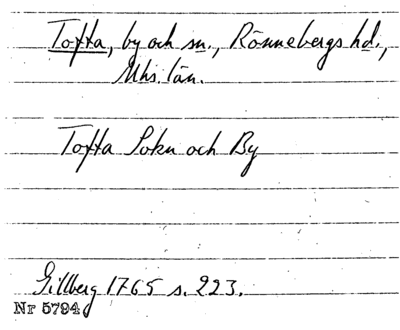 Tofta, by och sn., Rönnebergs hd.,
Mhs. län.
Tofta Sokn och By
Gillberg 1765 s. 223.
Nr 5794